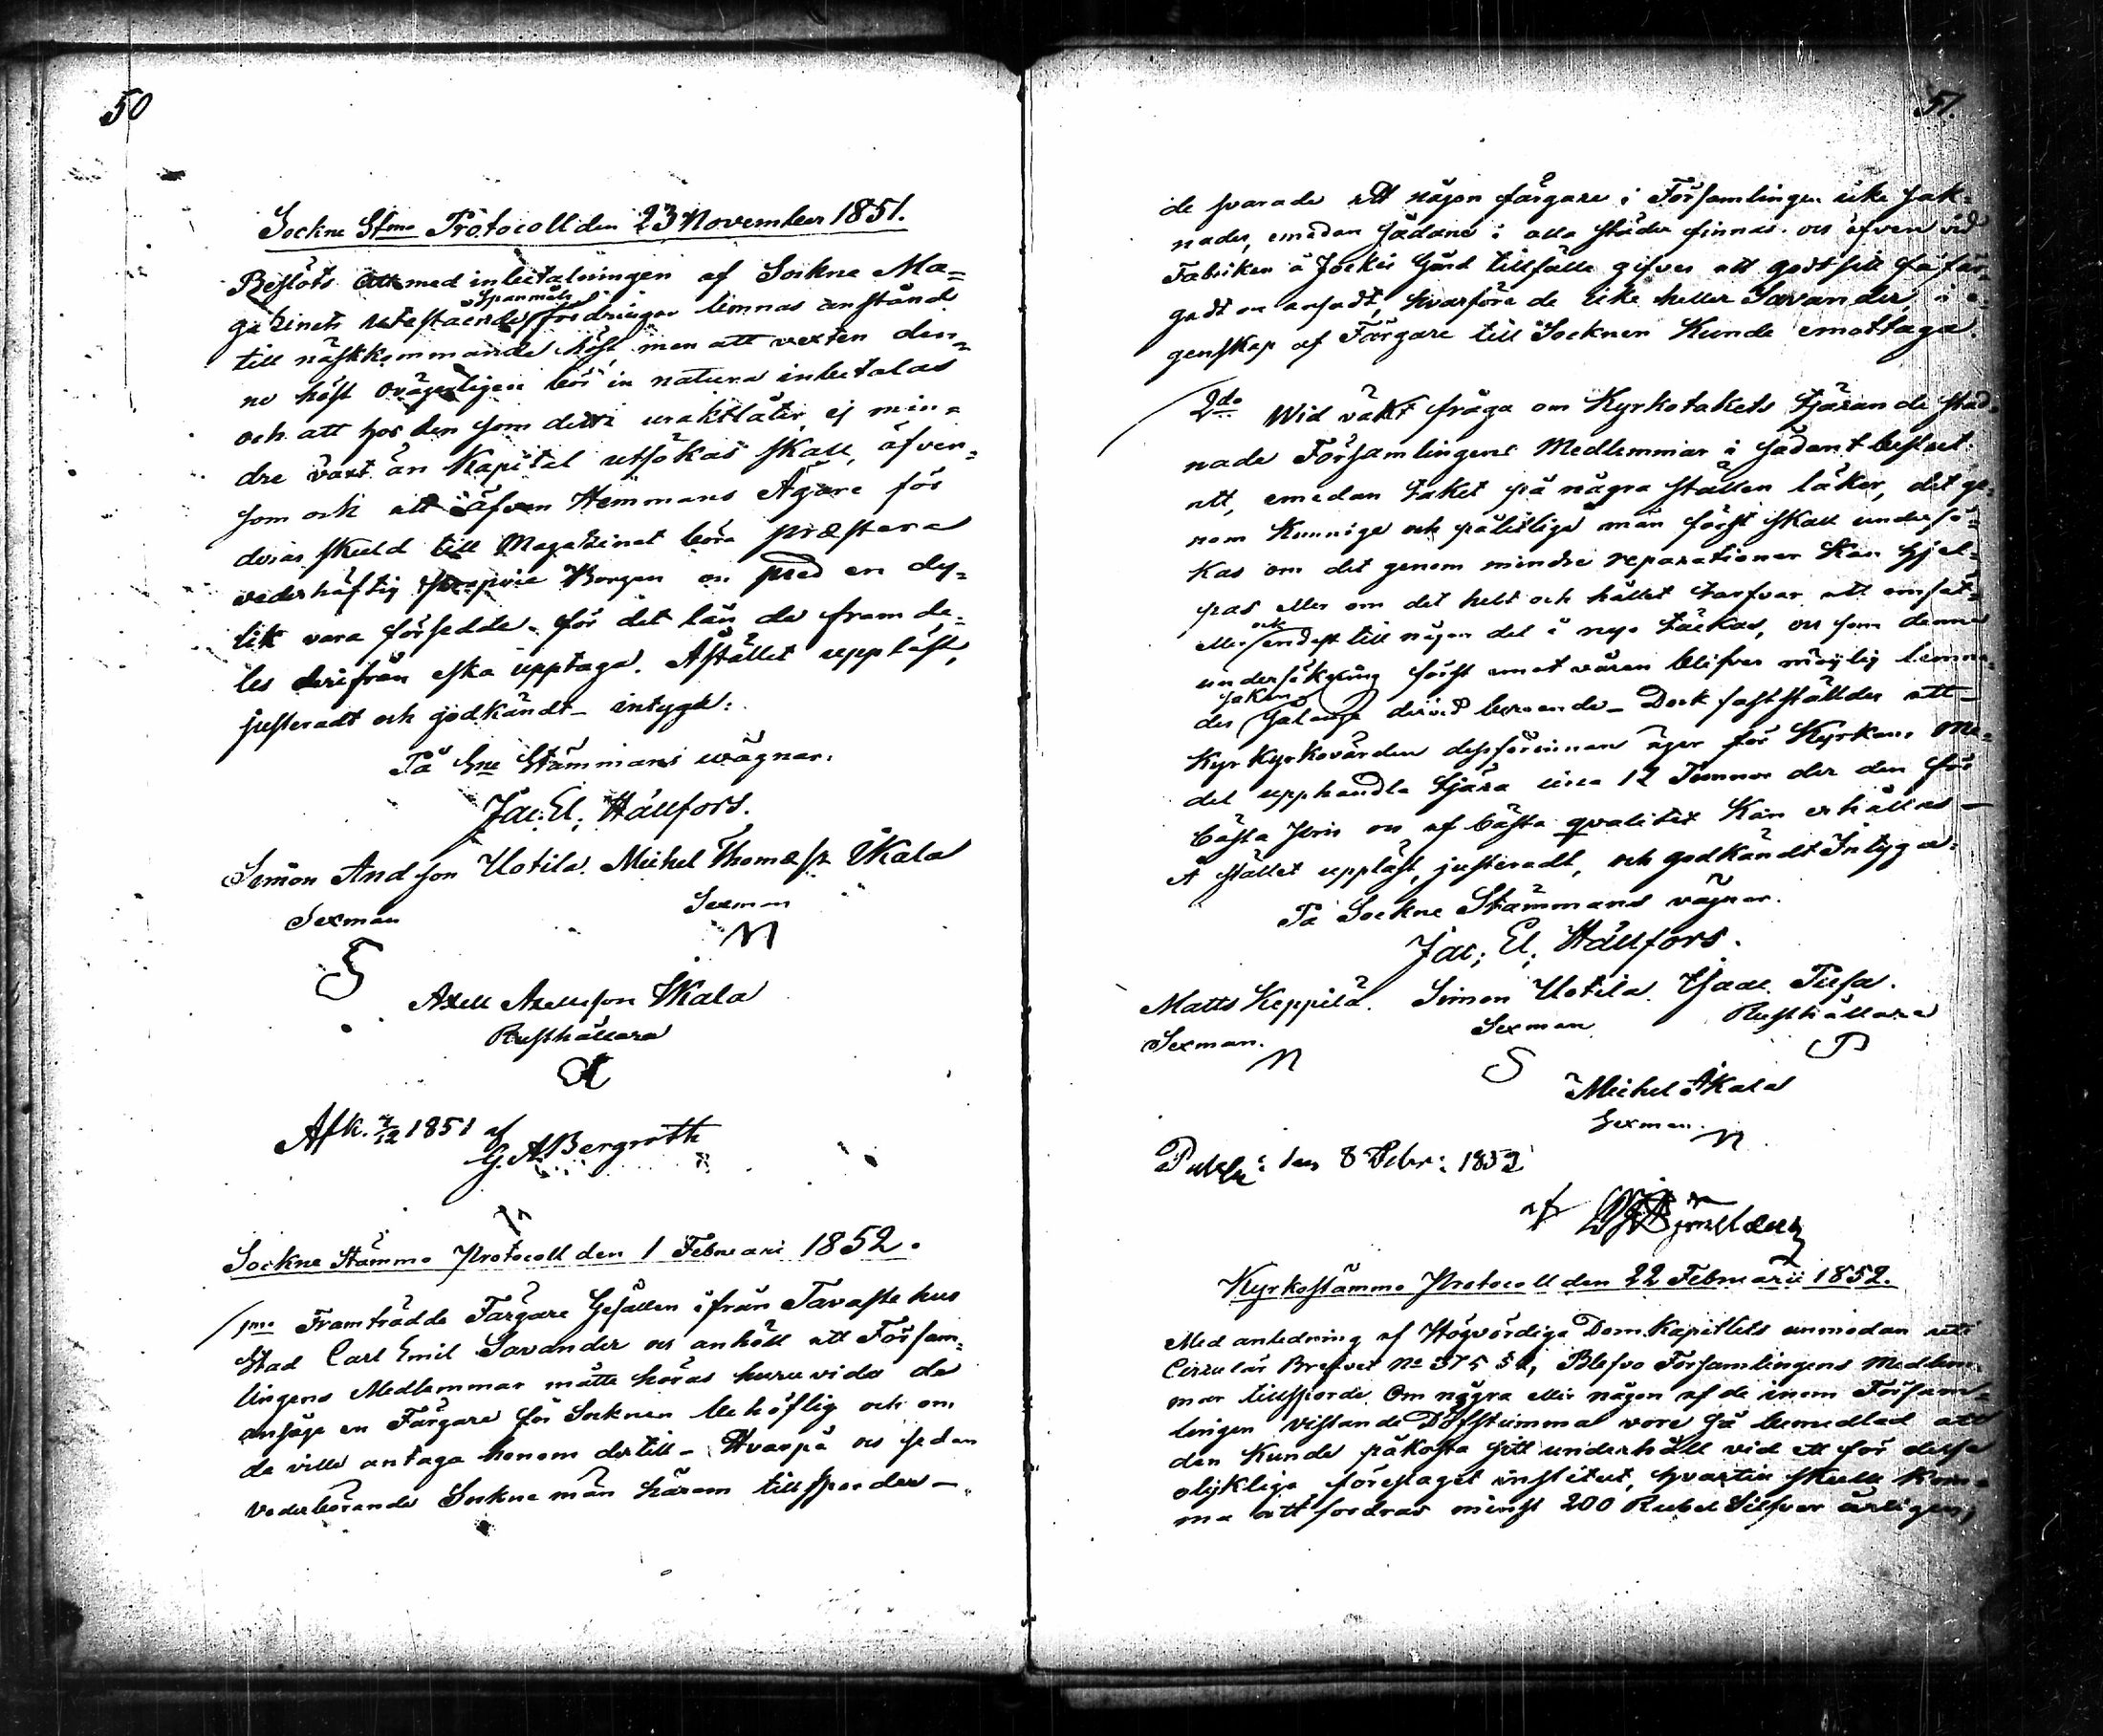 50
Sockne Stmo Protocoll den 23 November 1851.
Beslöts att med inbetalningen af Sockne Ma=
gazinets utestående Spanmåls fordringar lemnas anstånd
till nästkommande höst, men att vexten den=
na höst ovägerligen bör in natura inbetalas
och att hos den som detta uraktlåter, ej min=
dre växt än Kapital utsökas skall, äfven=
som och att äfven Hemmans Ägare för
deras skuld till Magazinet böra præstera
vederhäftig Borgen och med en dy=
lik vara försedde för det lån de framde=
les derifrån ska upptaga. Åstället uppläst,
justeradt och godkändt intyga:
På Sne Stämmans wägnar.
Jac. El. Hällfors.
Simon Andson Uotila. Michel Thomæss Ikala
Sexman Sexman
S M
Axell Axellsson Ikala
Rusthållare
A
Afk. 7/12 1851 af
G. A. Bergroth
Sockne Stämmo Protocoll den 1 Februari 1852.
1mo Framträdde Färgare Gesällen ifrån Tavastehus
Stad Carl Emil Savander och anhöll att Försam=
lingens Medlemmar måtte höras huruvida de
ansågo en Färgare för Socknen behöflig och om
de ville antaga honom dertill – Hvarpå och sedan
vederbörande Sockne män härom tillspordes –
51.
de svarade att någon färgare i Församlingen icke sak=
nades, emedan sådane i alla städer finnas och äfven vid
Fabriken å Jockis Gård tillfälle gifves att godt sill få fär=
gadt, hvarföre de icke heller Savander, i e=
genskap af Färgare till Socknen Kunde emottaga.
2do Wid väkt fråga om Kyrkotakets tjärande stad=
nade Församlingens Medlemmar i sådant beslut:
att, emedan taket på några ställen läker, det ge=
nom Kunnige och pålitlige män först skall undersö=
kas om det genom mindre reparationer Kan hjel=
pas eller om det helt och hållet tarfvar att omsät=
eller ock endast till någon del å nyo täckas, och som denna
undersökning först emot våren blifver möjlig lemna=
des saken sålänge dervid beroende – Dock fastställdes att
Kyrkovärden dessförinnan äger för Kyrkans Me=
del upphandla tjära circa 12 Tunnor der den för
bästa pris och af bästa qvalitet Kan erhållas –
Å stället uppläst, justeradt, och godkändt Intyga:
På Sockne Stämmans vägnar.
Jac. El. Hällfors.
Matts Keppilä. Simon Uotila. Isaac Tusa.
Sexman. Sexman Rusthållare
M S
Michel Ikala
Sexman.
M
Publ: den 8 Febr: 1852
af
Kyrkostämmo Protocoll den 22 Februarii 1852.
Med anledning af Högvördiga DomKapitlets anmodan uti
Circulär Brefvet No 375 § 2, Blefvo Församlingens Medlem
mar tillsporde Om några eller någon af de inom Försam=
lingen vistande Döfstumma vore så bemedlad att
den Kunde påkosta sitt underhåll vid ett för dessa
olyklige föreslaget institut, hvartill skulle Kom=
ma att fordras minst 200 Rubel Silfver årligen,